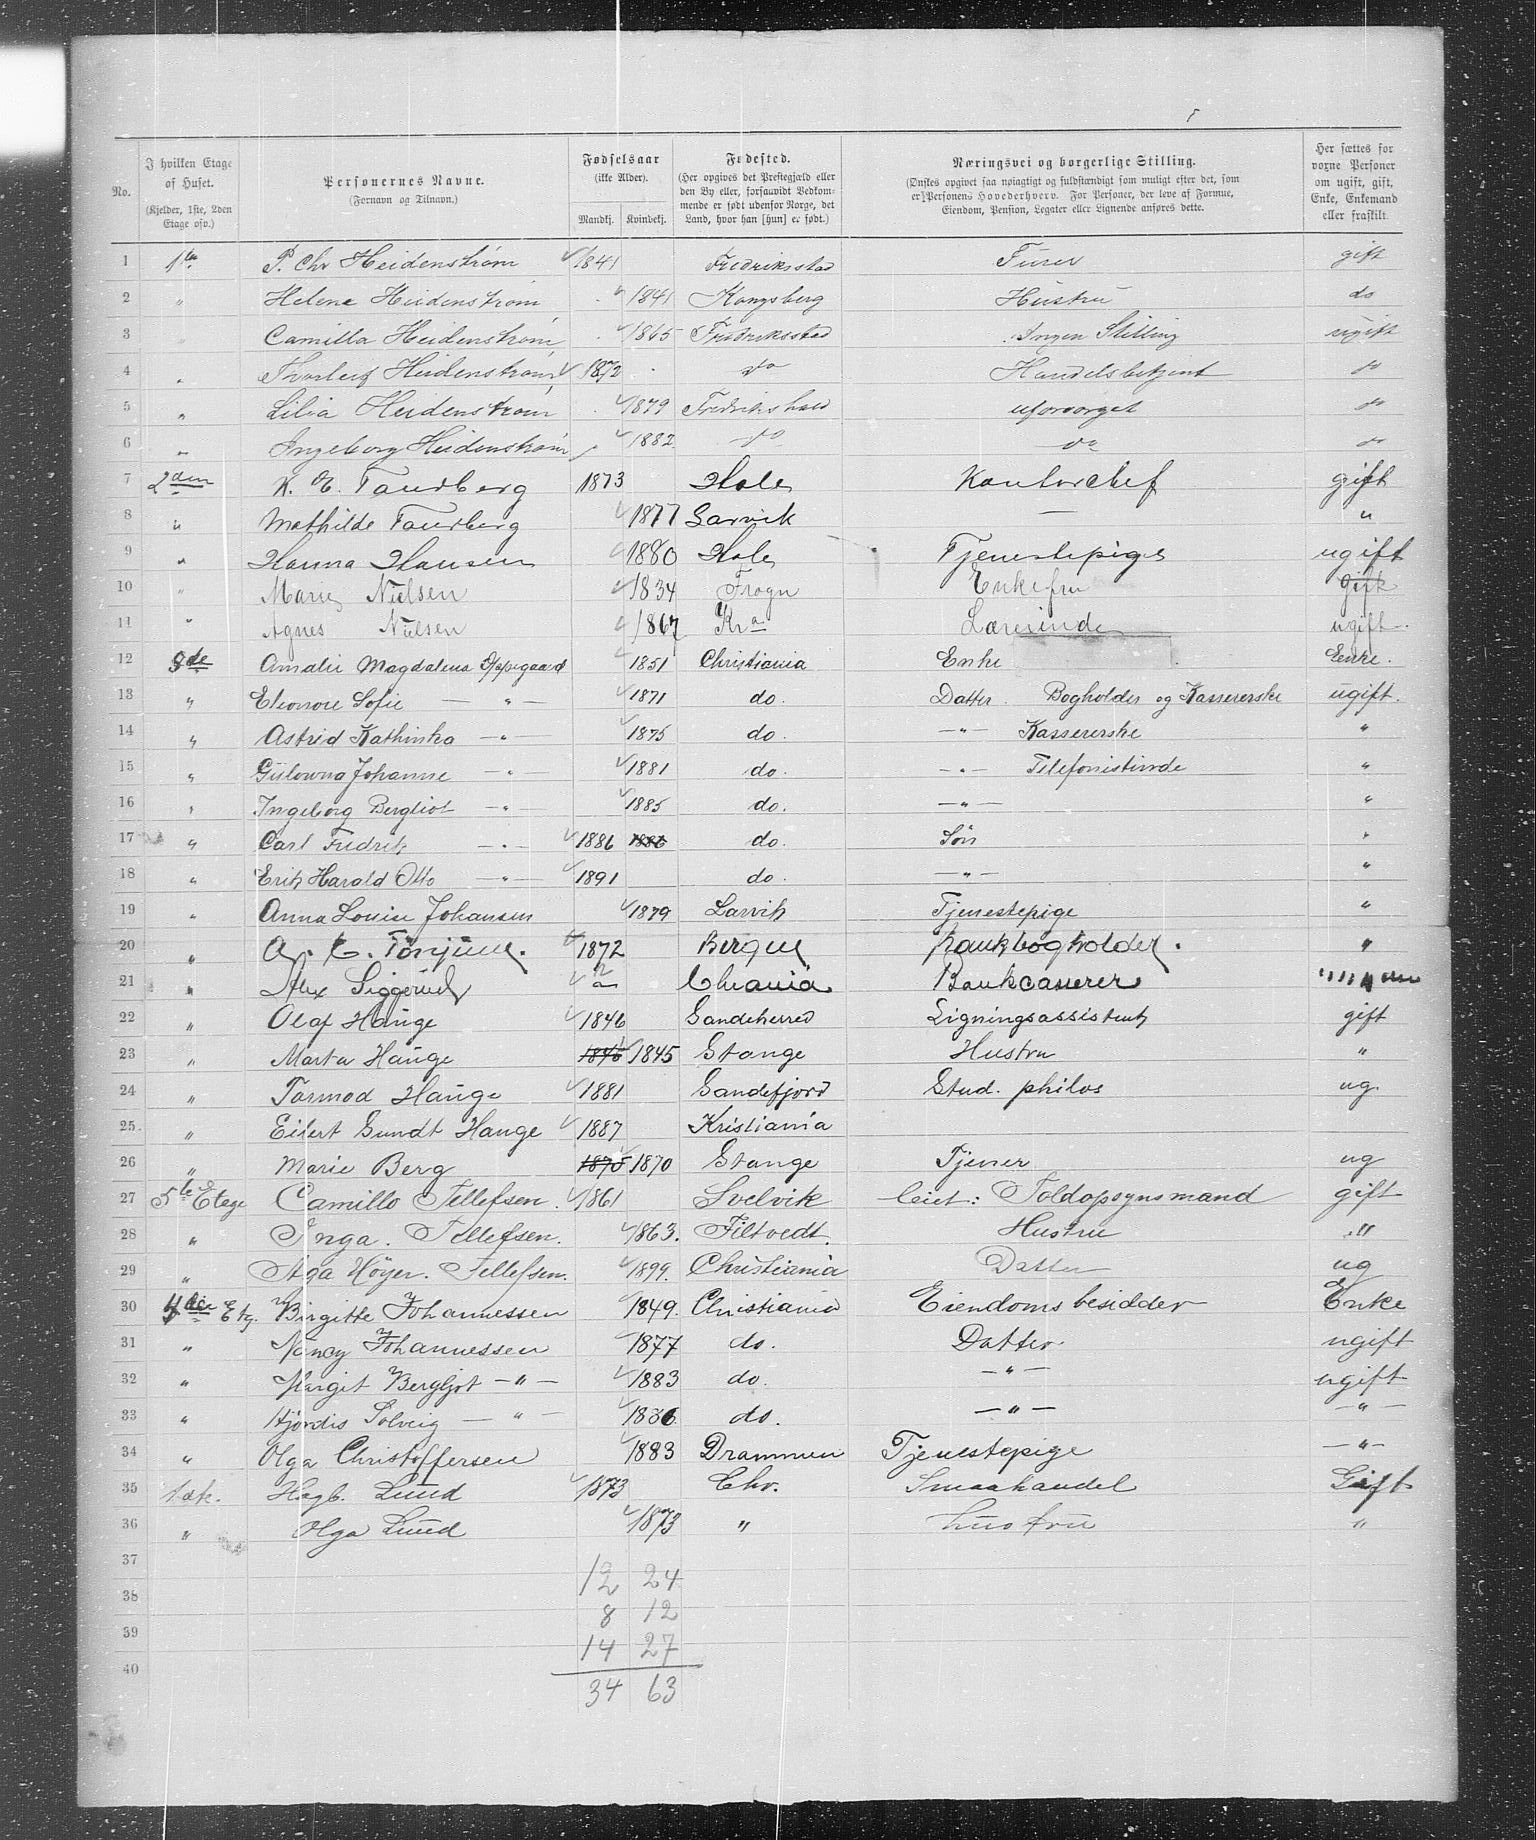 No. | I hvilken Etage af Huset. (Kjelder, 1ste, 2den Etage osv.) | Personernes Navne. (Fornavn og Tilnavn.) | Fødselsaar (ikke Alder). Mandkj. | Kvindekj. | Fødested. (Her opgives det Prestegjæld eller den By eller, forsaavidt Vedkommende er født udenfor Norge, det Land, hvor han [hun] er født.) | Næringsvei og borgerlige Stilling. (Ønskes opgivet saa nøiagtigt og fuldstændigt som muligt efter det, som er Personens Hovederhverv. For Personer, der leve af Formue, Eiendom, Pension, Legater eller Lignende anføres dette. | Her sættes for voxne Personer om ugift, gift, Enke, Enkemand eller fraskilt.
1 1ste P. Chr Heidenstrøm 1841 Fredriksstad Furer gift
2 " Helene Heidenstrøm 1841 Kongsberg Hustru do
3 " Camilla Heidenstrøm 1865 Fredriksstad Ingen Stilling ugift
4 " Thorleif Heidenstrøm 1872 do Handelsbetjent do
5 " Lilia Heidenstrøm 1879 Fredrikshald uforsorget do
6 " Ingeborg Heidenstrøm 1882 do do do
7 2den K. E. Tandberg 1873 Hole Kontorchef gift
8 " Mathilde Tandberg 1877 Larvik — "
9 " Hanna Hansen 1880 Hole Tjenestepige ugift
10 " Marie Nielsen 1834 Frogn Enkefru gift
11 " Agnes Nielsen 1867 Kra Lærerinde ugift.
12 3de Amalie Magdalena Oppegaard 1851 Christiania Enke Enke.
13 " Eleonore Sofie — " — 1871 do. Datter. Bogholder og Kassererske ugift.
14 " Astrid Kathinka — " — 1875 do. — " — Kassererske "
15 " Gulowna Johanne — " — 1881 do. — " — Telefonistinde "
16 " Ingeborg Bergliot — " — 1885 do. — " — "
17 " Carl Fredrik — " — 1886 1886 do. Søn "
18 " Erik Harald Otto — " — 1891 do. — " — "
19 " Anna Louise Johansen 1879 Larvik Tjenestepige "
20 " A. C. Tønjum. 1872 Bergen Bankbogholder. "
21 " Alex Siggerud Chrania Bankcasserer
22 " Olaf Hauge 1846 Sandeherred Ligningsassistent gift
23 " Marta Hauge 1845 1845 Stange Hustru "
24 " Tormod Hauge 1881 Sandefjord Stud. philos ug.
25. " Eilert Sundt Hauge 1887 Kristiania
26 " Marie Berg 1875 1870 Stange Tjener ug
27 5te Etage Camillo Tellefsen. 1861 Svelvik leiet: Toldopsynsmand gift
28 " Inga. Tellefsen. 1863. Filtvedt. Hustru "
29 " Aga Höyer. Tellefsen. 1899. Christiania Datter ug
30 4de Etg. Birgitte Johannessen 1849. Christiania Eiendomsbesidder Enke
31 " Nancy Johannessen 1877 do. Datter. ugift
32 " Margit Bergljot — " — 1883 do. — " — ugift
33 " Hjørdis Solveig — " — 1886 do. — " — — " —
34 " Olga Christoffersen 1883 Drammen Tjenestepige — " —
35 1 æt. Hagb. Lund 1873 Chr. Smaahandel Gift
36 " Olga Lund 1873 " hustru "
37 12 24
38 8 12
39 14 27
40 34 63